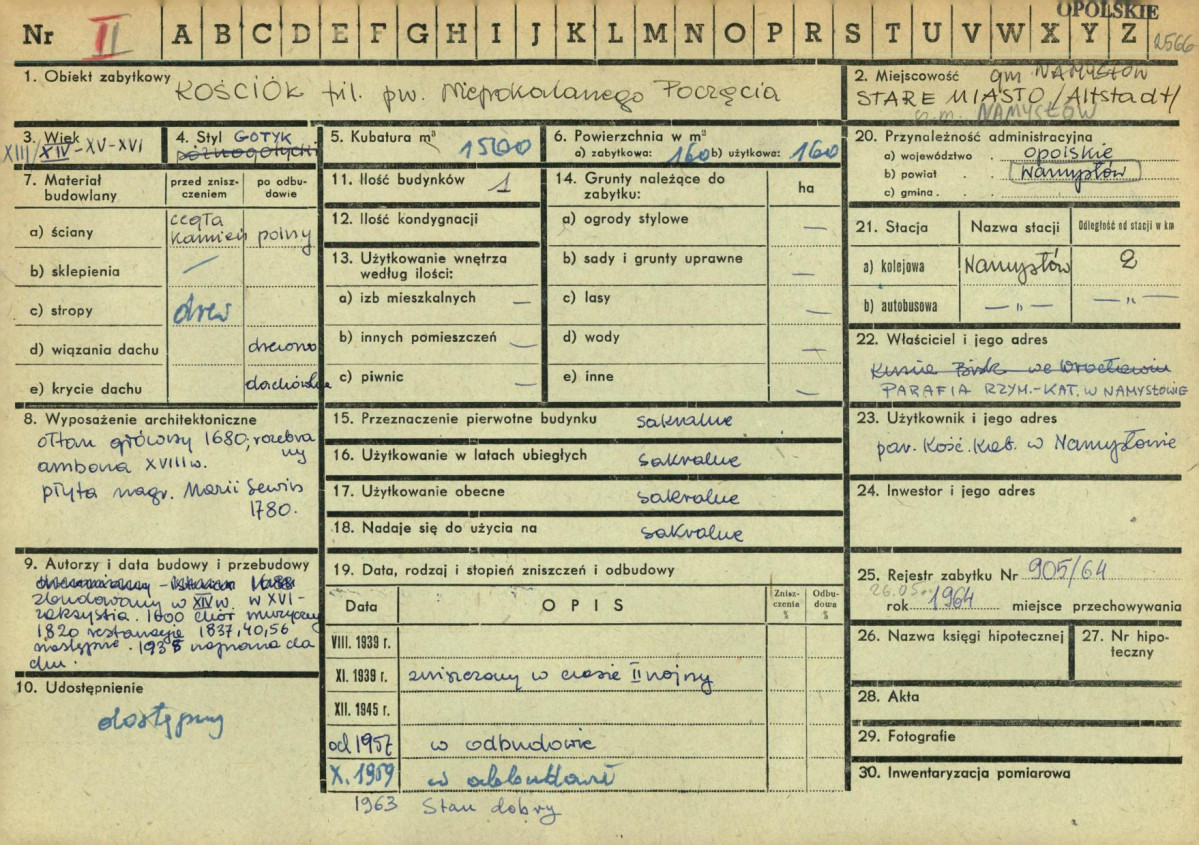 OPOLSKIE
Nr II A B C D E F G H I J K L M N O P R S T U V W X Y Z 2566
1. Obiekt zabytkowy KOŚCIÓŁ fil. pw. Niepokalanego Poczęcia
2. Miejscowość gm. NAMYSŁÓW
STARE MIASTO /Altstadt/
NAMYSŁÓW
3. Wiek
XIII/XIV-XV-XVI
4. Styl GOTYK
późnogotycki
5. Kubatura m³ 1500
6. Powierzchnia w m²
a) zabytkowa: 160 b) użytkowa: 160
20. Przynależność administracyjna
a) województwo opolskie
b) powiat Namysłów
c) gmina
7. Materiał budowlany
przed zniszczeniem
po odbudowie
a) ściany cegła kamień polny
b) sklepienia —
c) stropy drew
d) wiązania dachu drewno
e) krycie dachu dachówka
11. Ilość budynków 1
12. Ilość kondygnacji
13. Użytkowanie wnętrza według ilości:
a) izb mieszkalnych —
b) innych pomieszczeń —
c) piwnic —
14. Grunty należące do zabytku: ha
a) ogrody stylowe —
b) sady i grunty uprawne —
c) lasy —
d) wody —
e) inne —
21. Stacja Nazwa stacji Odległość od stacji w km
a) kolejowa Namysłów 2
b) autobusowa —„— —„—
22. Właściciel i jego adres
Kuria Bisk. we Wrocławiu
PARAFIA RZYM.-KAT. W NAMYSŁOWIE
8. Wyposażenie architektoniczne
ołtarz główny 1680, rozebrany
ambona XVIII w.
płyta nagr. Marii
1780.
15. Przeznaczenie pierwotne budynku sakralne
16. Użytkowanie w latach ubiegłych sakralne
17. Użytkowanie obecne sakralne
18. Nadaje się do użycia na sakralne
23. Użytkownik i jego adres
par. Kość. Kat. w Namysłowie
24. Inwestor i jego adres
9. Autorzy i data budowy i przebudowy
zbudowany w XIV w. w XVI -
zakrystia. 1600 chór muzyczny
1820 restauracje 1837, 40, 56
następne. 1935 naprawa da
chu.
10. Udostępnienie
dostępny
19. Data, rodzaj i stopień zniszczeń i odbudowy
Data OPIS Zniszczenia % Odbudowa %
VIII. 1939 r.
XI. 1939 r. zniszczony w czasie II wojny
XII. 1945 r.
od 1957 w odbudowie
X. 1959 w odbudowie
1963 Stan dobry
25. Rejestr zabytku Nr 905/64
26.05.
rok 1964 miejsce przechowywania
26. Nazwa księgi hipotecznej
27. Nr hipoteczny
28. Akta
29. Fotografie
30. Inwentaryzacja pomiarowa